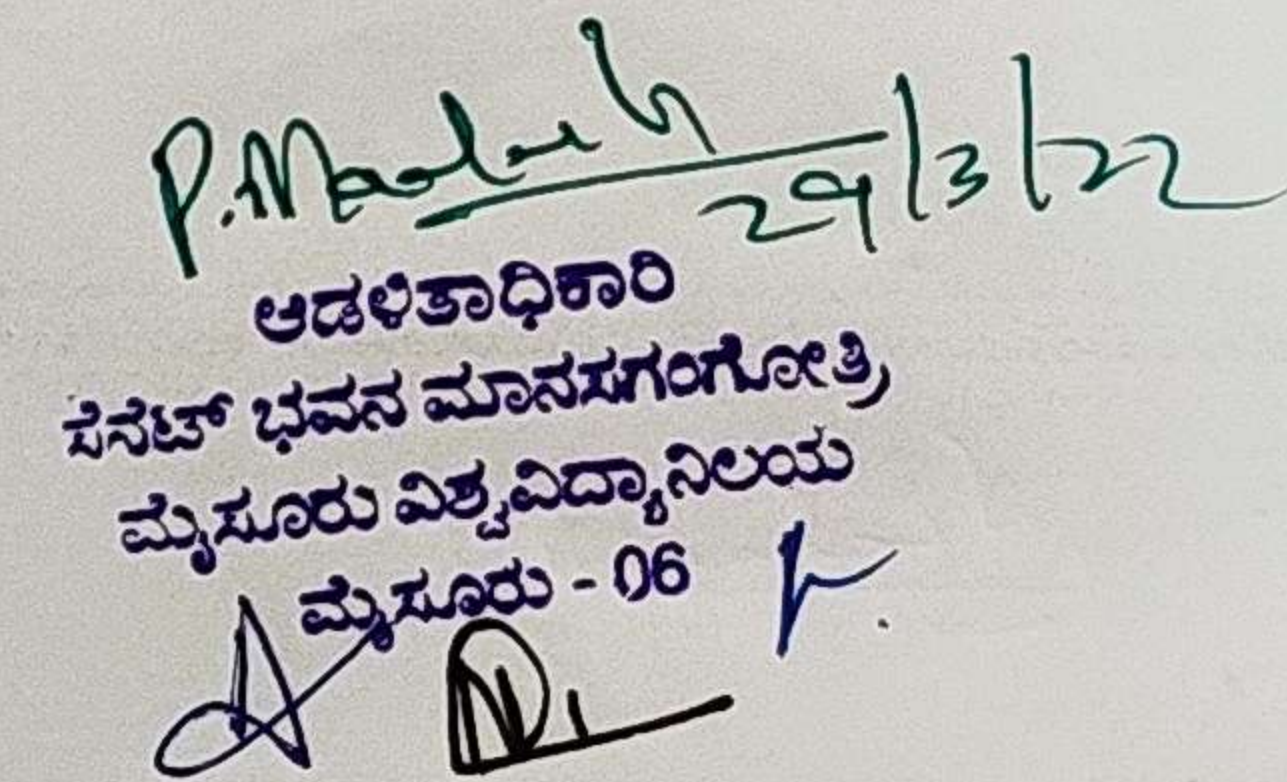 29/3/22
ಆಡಳಿತಾಧಿಕಾರಿ
ಸೆನೆಟ್ ಭವನ ಮಾನಸಗಂಗೋತ್ರಿ
ಮೈಸೂರು ವಿಶ್ವವಿದ್ಯಾನಿಲಯ
ಮೈಸೂರು - 06